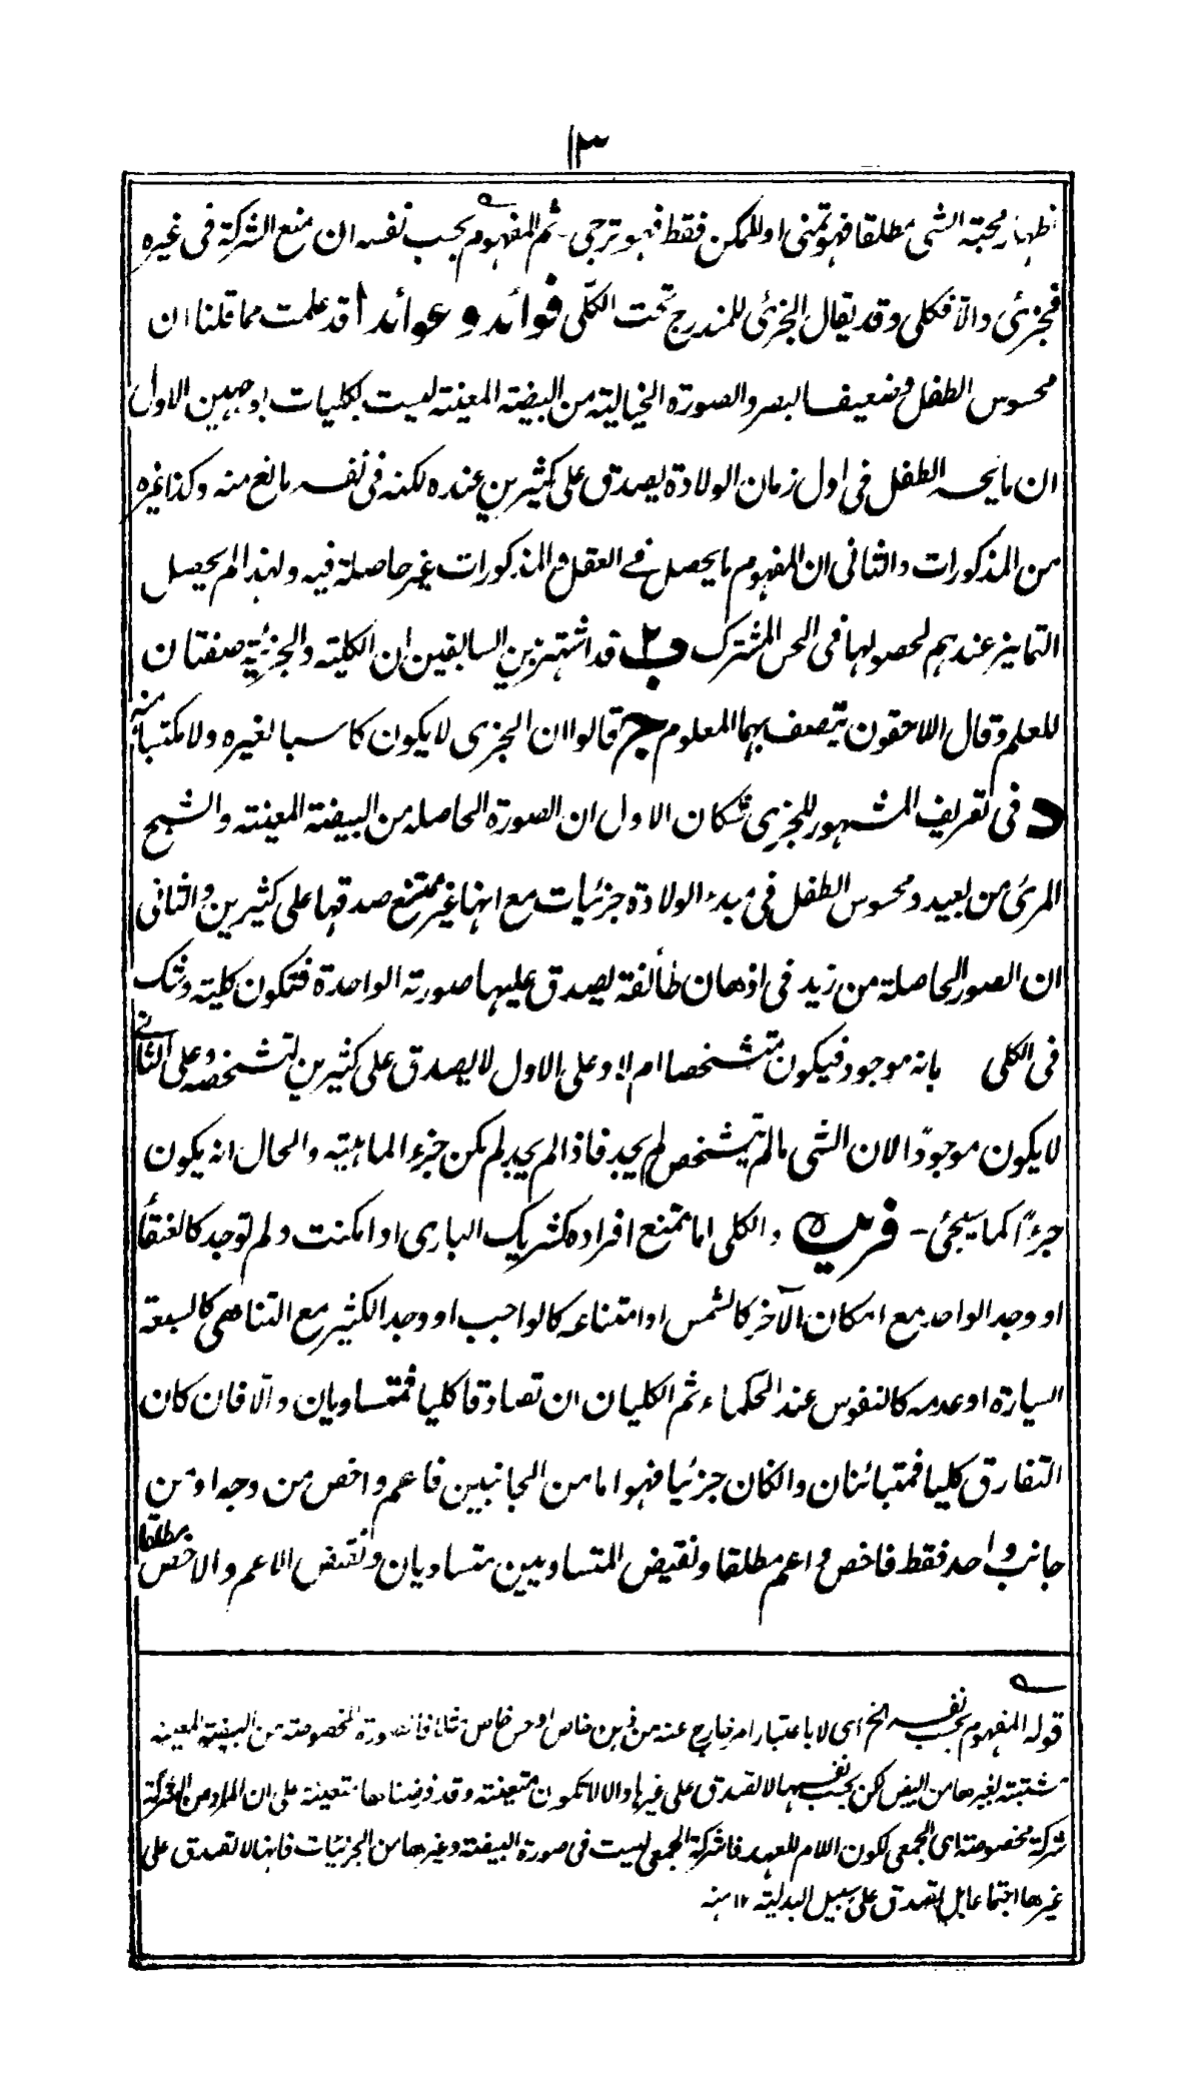 ١٣
ظهار محبته الشئ مطلقا فهو تمنى او للممكن فقط فهو ترجى - ثم المفهوم بحسب نفسه ان منع الشركة فى غيره
فجزئى والا فكلى وقد يقال الجزئى للمندرج تحت الكلى فوائد و عوائد ا قد علمت مما قلنا ان
محسوس الطفل وضعيف البصر والصورة الخيالية من البيضة المعينة ليست بكليات بوجهين الاول
ان ما يحسه الطفل فى اول زمان الولادة يصدق على كثيرين عنده لكنه فى نفسه مانع منه وكذا غيره
من المذكورات والثانى ان المفهوم ما يحصل فى العقل والمذكورات غير حاصلة فيه ولهذا لم يحصل
التمايز عندهم لحصولها فى الحس المشترك ب قد اشتهر بين السابقين ان الكلية والجزئية صفتان
للعلم وقال اللاحقون يتصف بهما المعلوم ج قالوا ان الجزى لا يكون كاسبا لغيره ولا مكتسبا منه
د فى تعريف المشهور للجزى شكان الاول ان الصورة الحاصله من البيضة المعينة والشبح
المرئى من بعيد ومحسوس الطفل فى مبدء الولادة جزئيات مع انها غير ممتنع صدقها على كثيرين والثانى
ان الصور الحاصلة من زيد فى اذهان طائفة يصدق عليها صورته الواحدة فتكون كلية وشك
فى الكلى بانه موجود فيكون متشخصا ام لا وعلى الاول لا يصدق على كثيرين لتشخصه وعلى الثانى
لا يكون موجودا لان الشى ما لم يتشخص لم يجد فاذا لم يجد لم يكن جزء الماهية والحال انه يكون
جزءا كما سيجئ - فريده والكلى اما تمتنع افراده كشريك البارى او امكنت ولم توجد كالعنقاء
او وجد الواحد مع امكان الآخر كالشمس او امتناعه كالواجب او وجد الكثير مع التناهى كالسبعة
السيارة او عدمه كالنفوس عند الحكماء ثم الكليان ان تصادقا كليا فمتساويان والا فان كان
التفارق كليا فمتبائنان والكان جزئيا فهو اما من الجانبين فاعم واخص من وجه او من
جانب واحد فقط فاخص و اعم مطلقا ونقيض المتساويين متساويان ونقيض الاعم والاخص مطلقا
قوله المفهوم بحسب نفسه الخ اى لا باعتبار امر خارج عنه من ذهن خاص او حس خاص مثلا فالصورة المخصوصة من البيضة المعينة
مشتبهة بغيرها من البيض لكن بحسب نفسها لا تصدق على غيرها والا لا تكون متعينة وقد فرضناها متعينة على ان المراد من الشركة
شركة مخصوصة اى الجمعى لكون اللام للعهد فالشركة الجمعى ليست فى صورة البيضة وغيرها من الجزئيات فانها لا تصدق على
غيرها اجتماعا بل تصدق على سبيل البدلية ١٢ منه